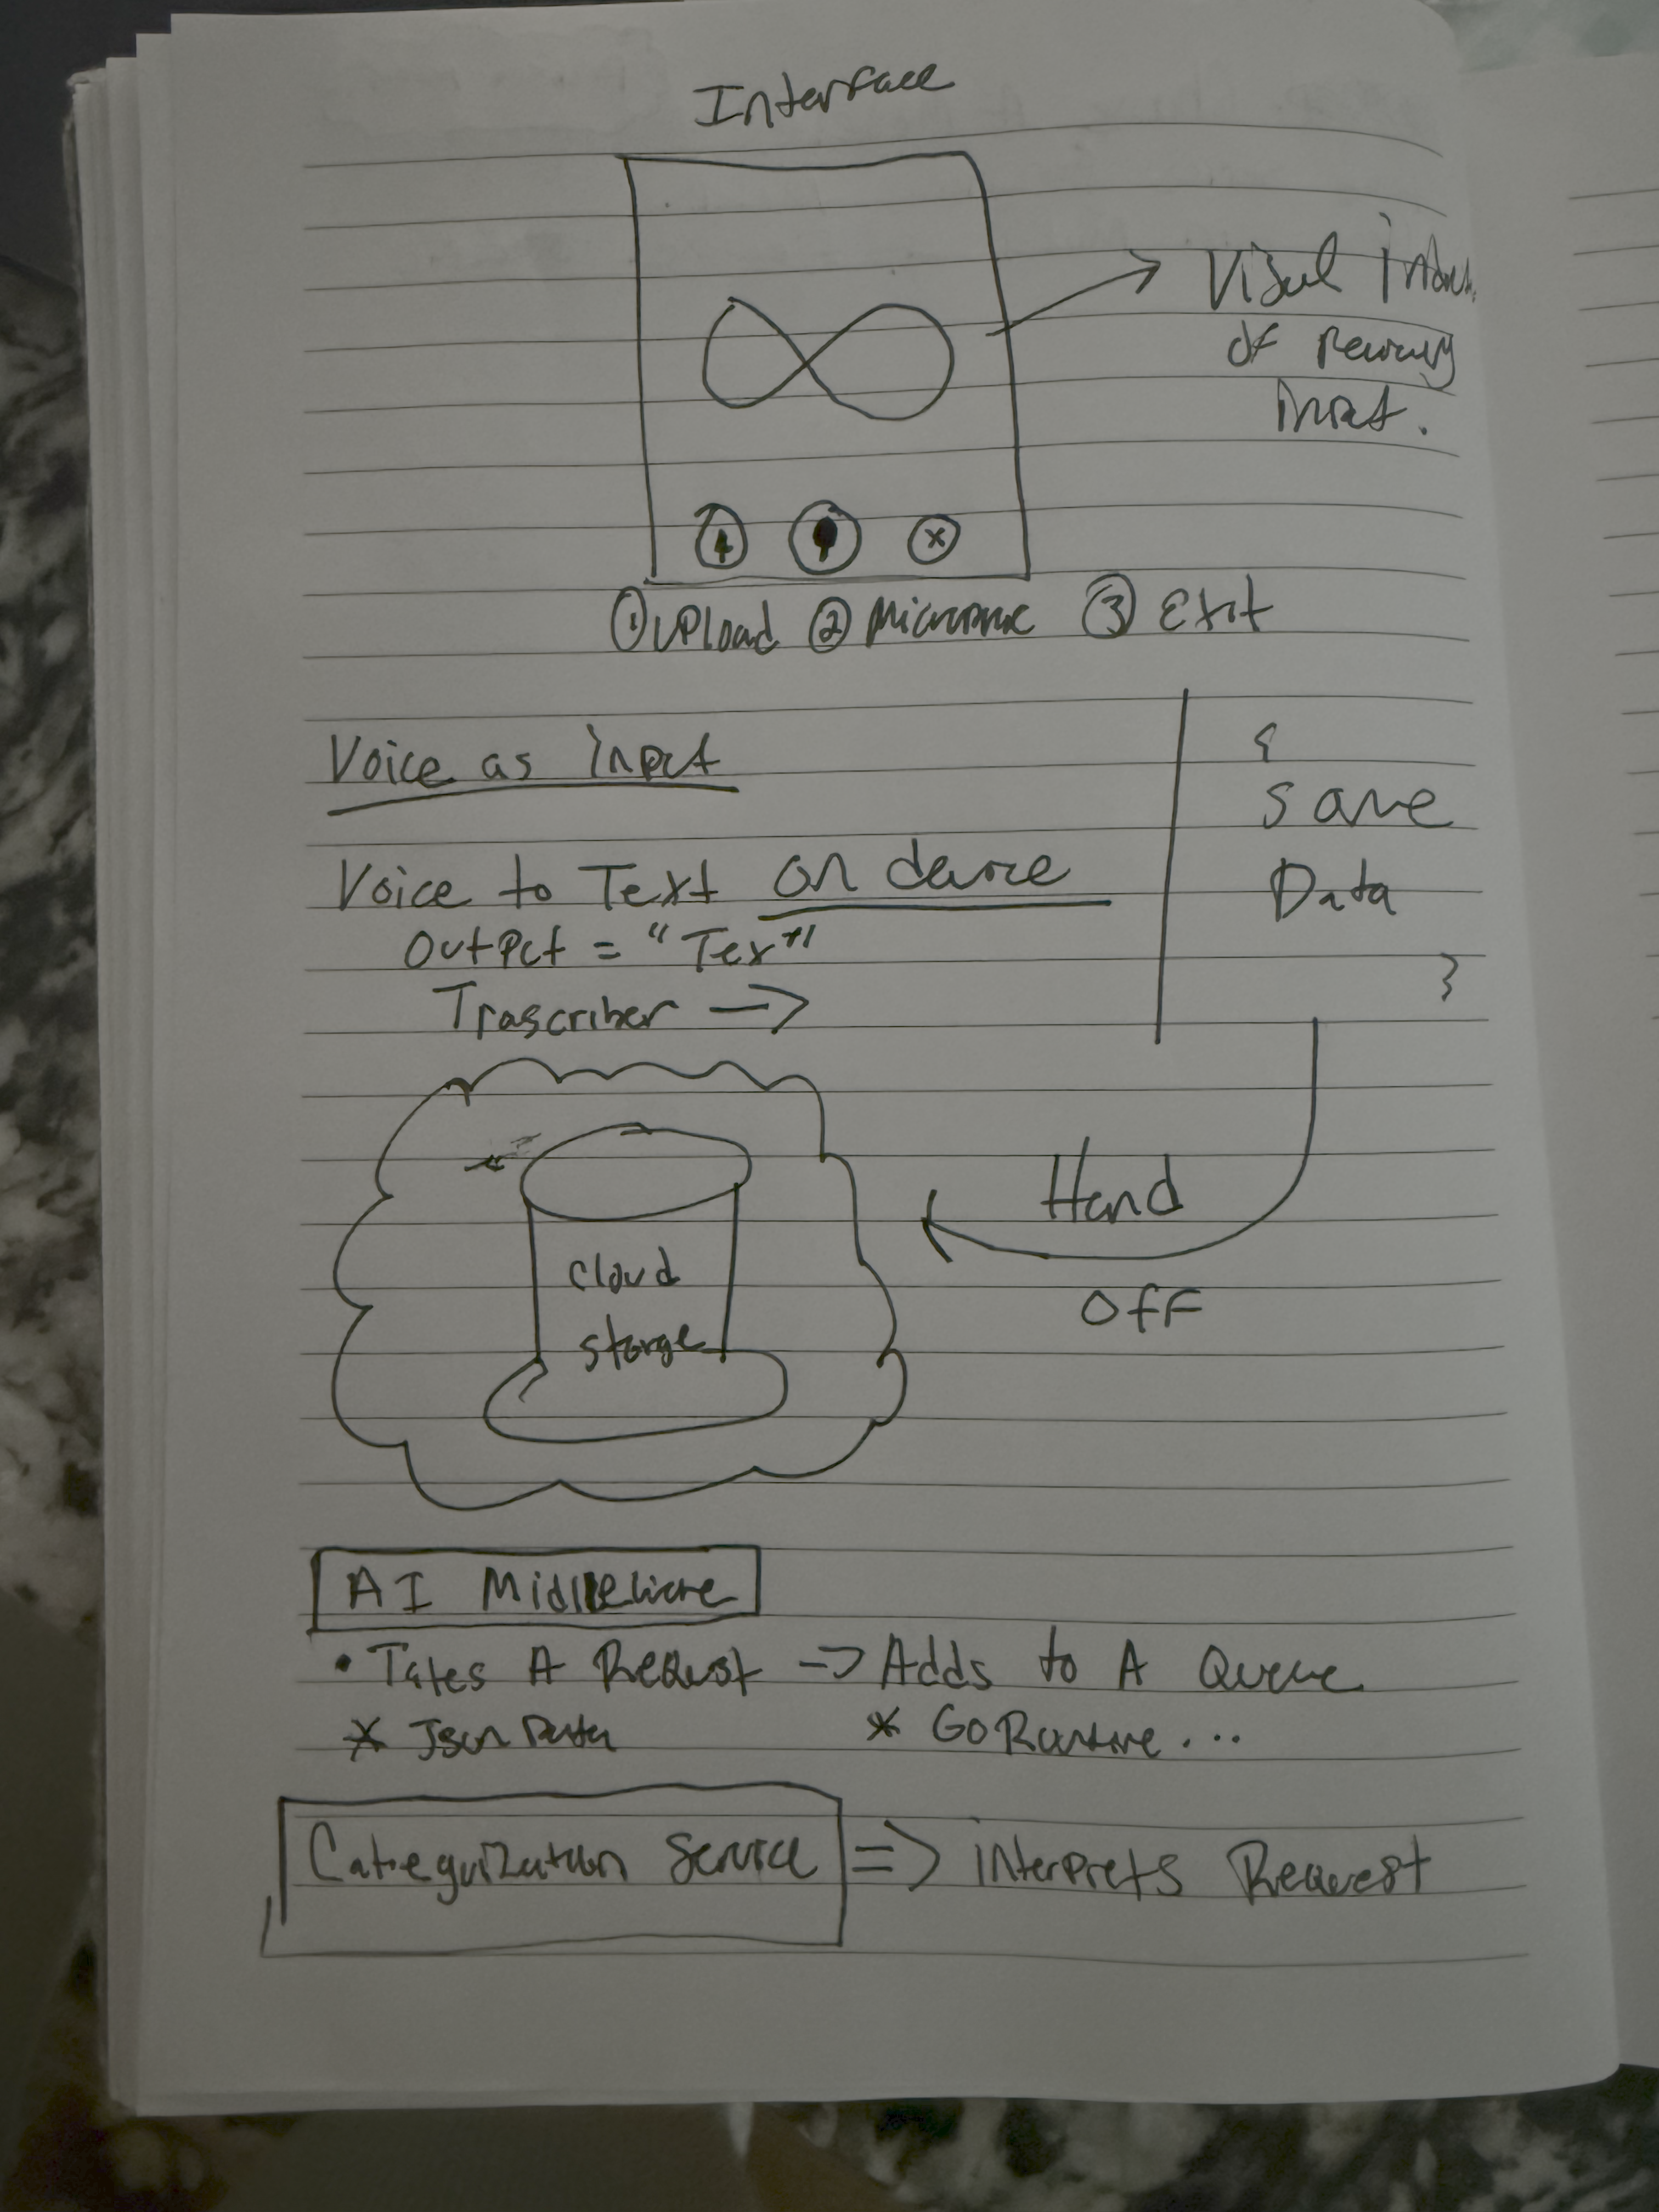 Interface
Visul
of
input.
① Upload ② Micropne ③ Exit
Voice as input
{
Save
Data
}
Voice to Text on device
Output = "Text"
Trascriber →
Hand
Off
cloud
storge
AI Middleware
• Takes A Request => Adds to A Queue
* Json Data * GoRoutine...
Categorization Service => interprets Request